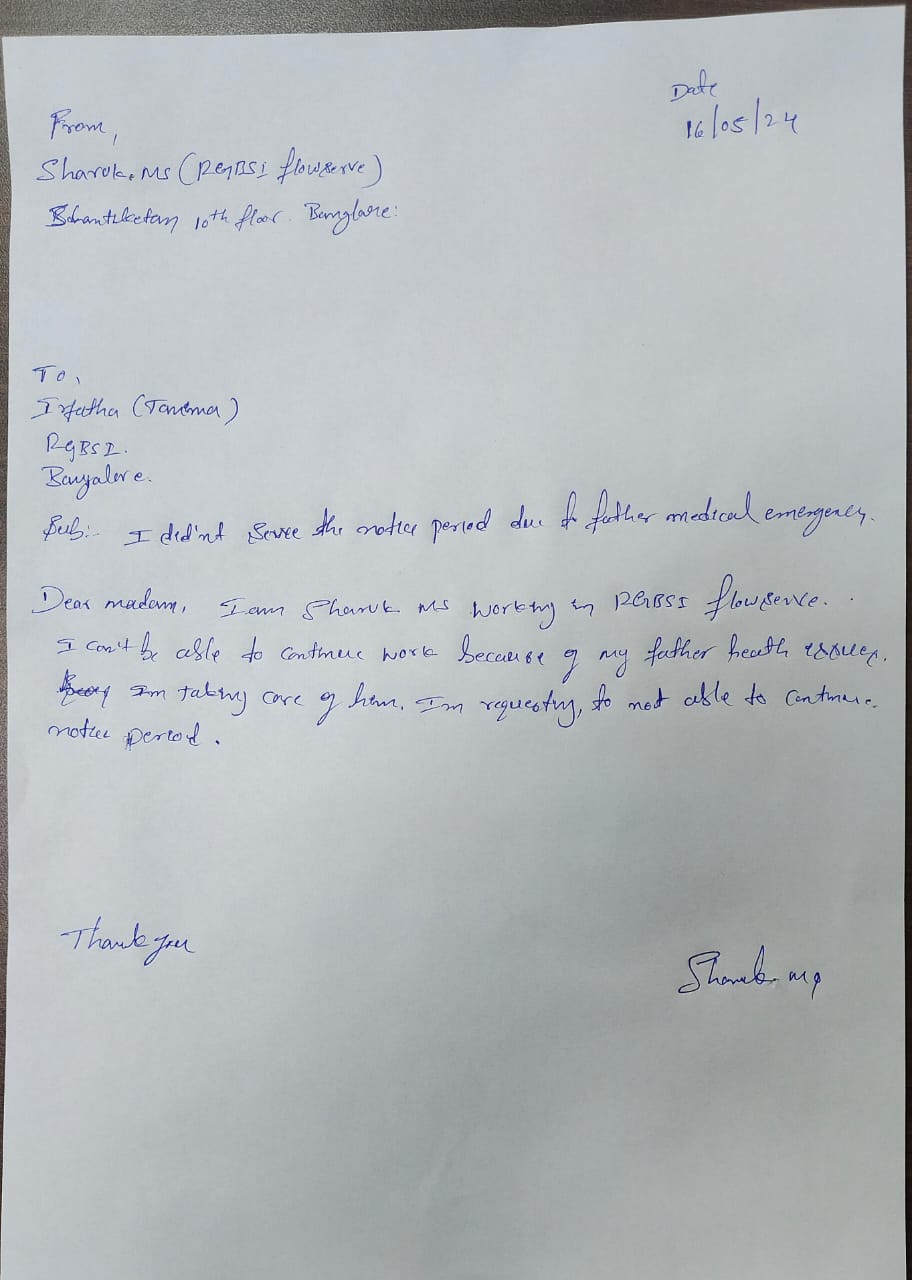 Date
16/05/24
From,
Sharuk. MS (RGBSI flowserve)
Shantiketan 10th floor. Banglore:
To,
Irfatha (Tanima)
RGBSI.
Bangalore.
Sub:- I did'nt serve the notice period due to father medical emergency.
Dear madam, I am Sharuk MS working in RGBSI flowserve.
I can't be able to continue work because of my father heath issues.
I'm taking care of him. I'm requesting, to not able to continue.
notice period.
Thank you
Sharuk MS